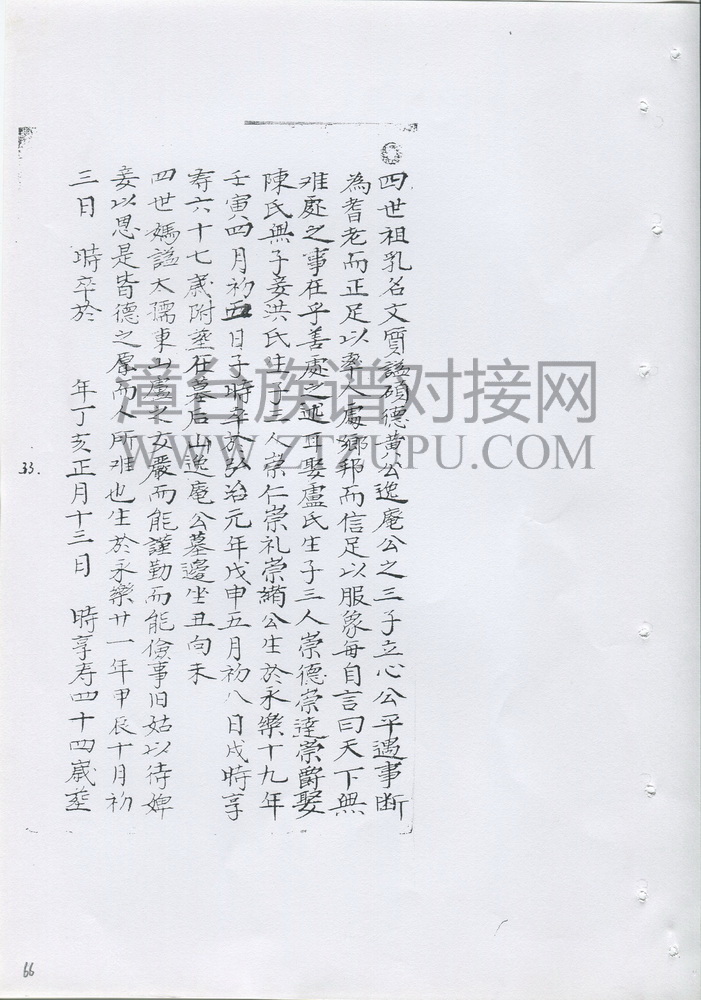 四世祖乳名文質謚碩德黄公逸庵公之三子立心公平遇事断
為耆老而正足以率人處鄉邦而信足以服衆每自言曰天下無
难處之事在乎善處之述正娶盧氏生子三人崇德崇達崇爵娶
陳氏無子妾洪氏生子三人崇仁崇礼崇緒公生於永樂十九年
壬寅四月初五日子時卒於弘治元年戊申五月初八日戌時享
寿六十七歳附塟在墓后山逸庵公墓邊坐丑向未
四世媽謚太孺東山盧之女嚴而能謹勤而能儉事旧姑以待婢
妾以恩是皆德之厚而人所难也生於永樂廿一年甲辰十月初
三日 時卒於 年丁亥正月十三日 時享寿四十四歳塟
33.
漳台族谱对接网
WWW.ZTZUPU.COM
66